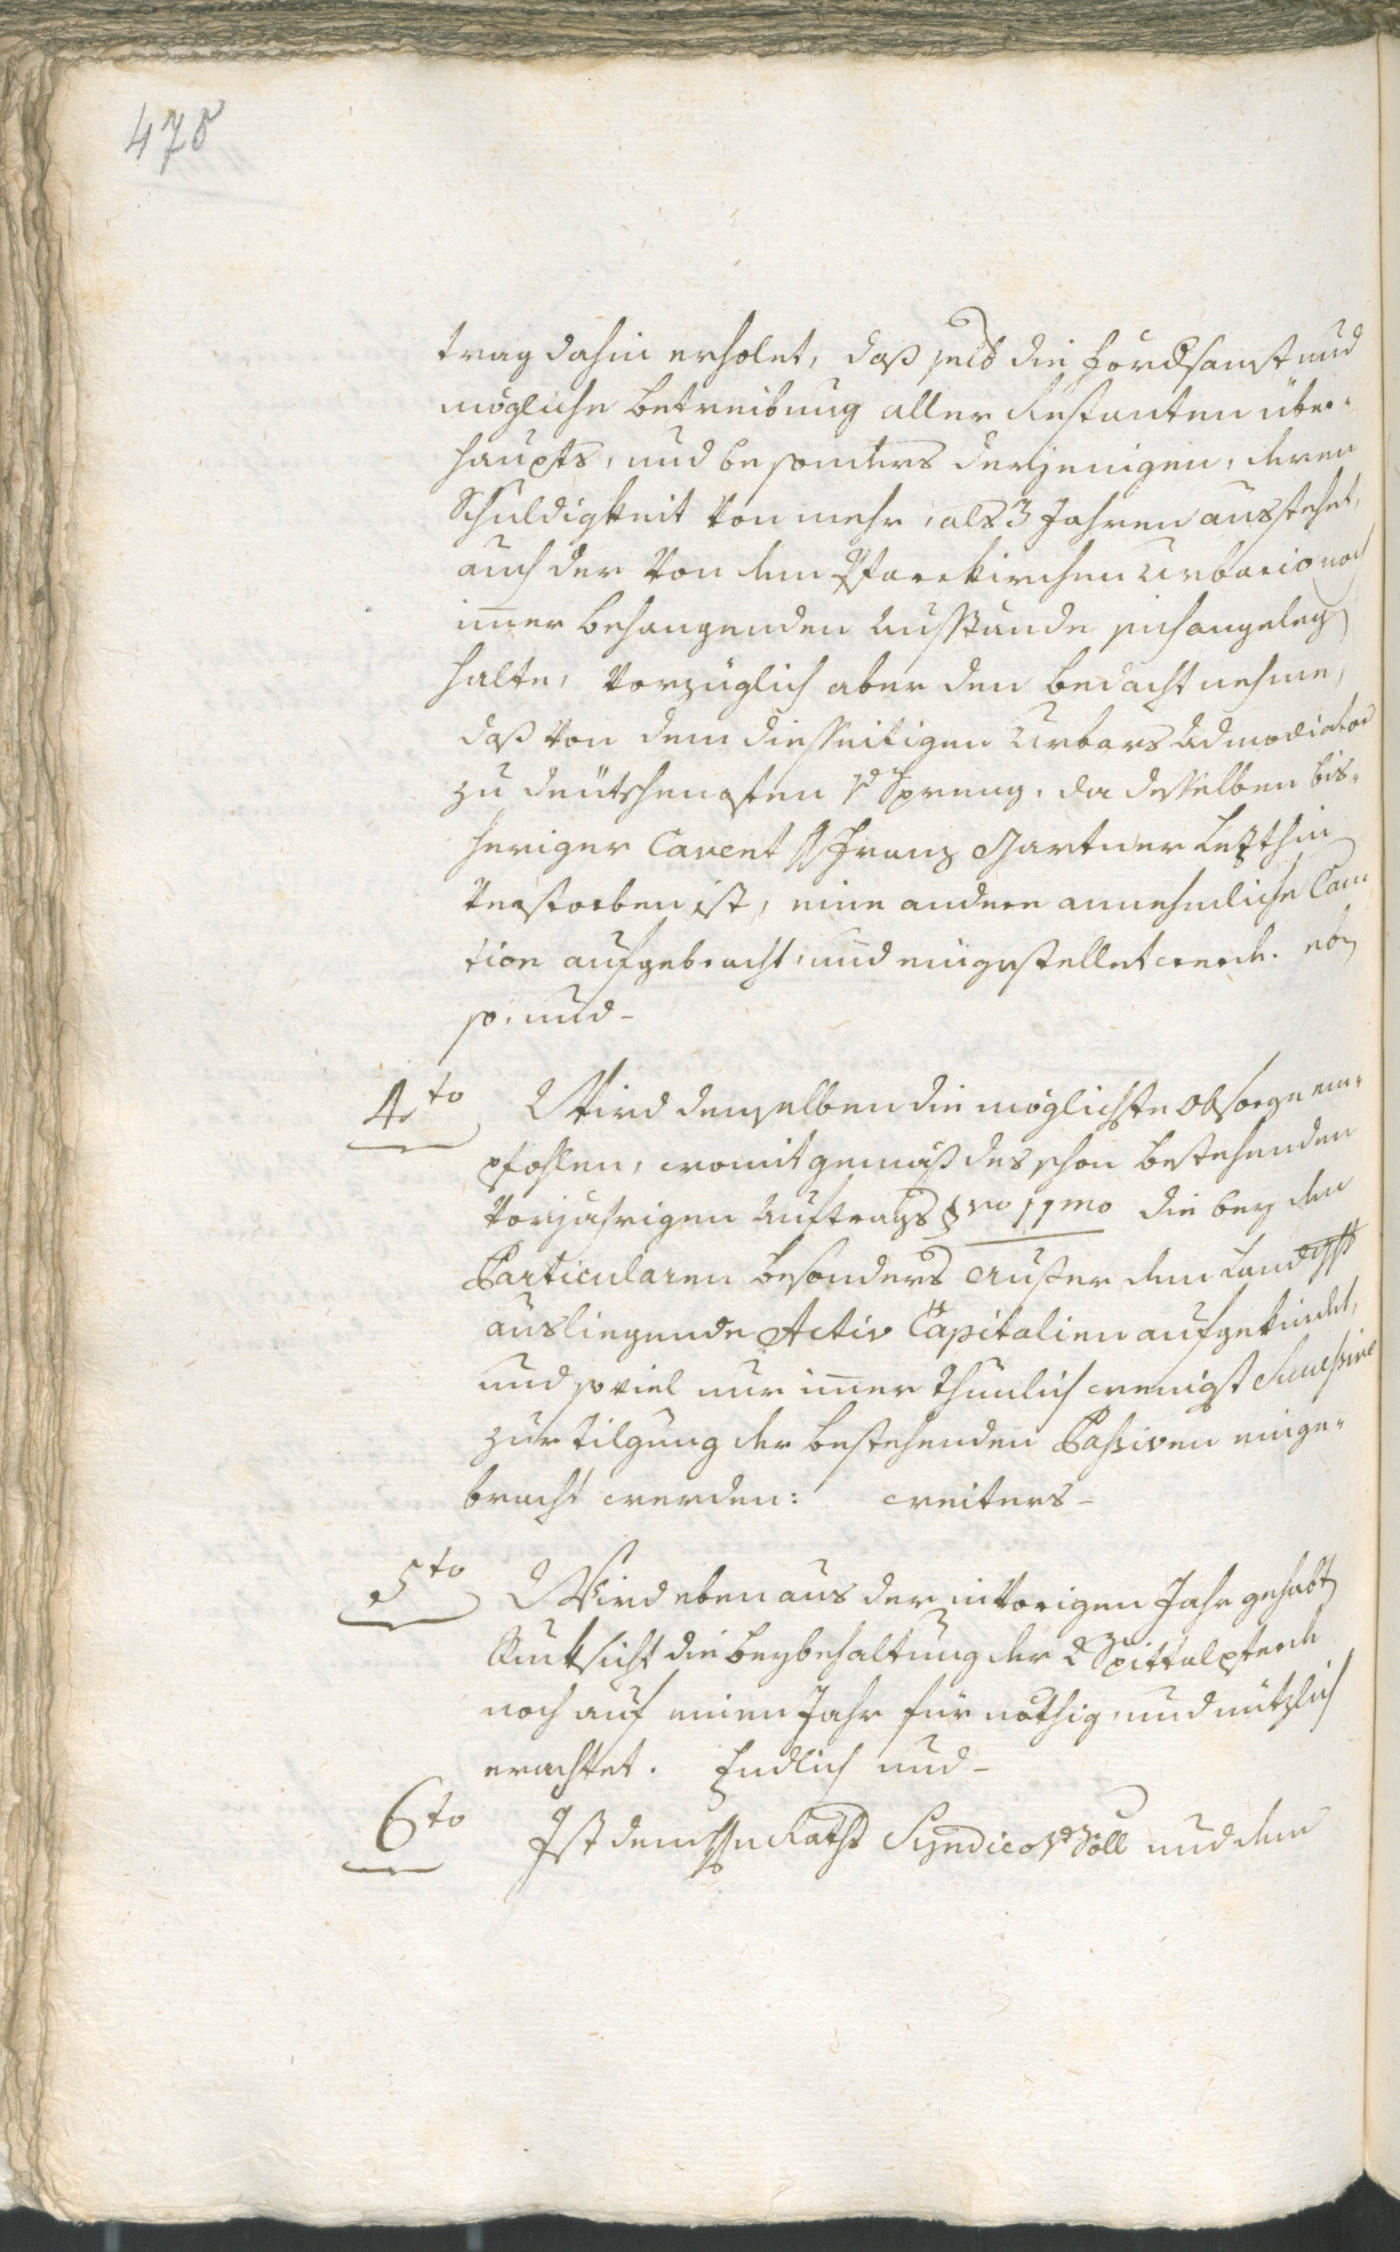 478
trag dahin erholet, daß selb die fordsamst und
mögliche betreibung aller Restanten über-
haupts, und besonders derjenigen, deren
Schuldigkeit von mehr, als 3 Jahren ausstehet,
auch der von dem Pfarrkirchen Urbario noch
im̄er behangenden Ausstände sich angelegen
halte, vorzüglich aber den bedacht nehme,
daß von dem diesseitigen Urbars Admodiator
zu deutschenofen Spreng, da desselben bis-
heriger Cavent H Franz Gartner letzthin
verstorben ist, eine andere annehmliche Cau
tion aufgebracht, und eingestellet werde. eben
so, und-
4to Wird demselben die möglichste obsorge em-
pfohlen, womit gemäß des schon bestehenden
vorjährigen Auftrags §vo 11mo die bey den
Particularen besonders ausser dem Landgst
ausliegende Activ Capitalien aufgekündet,
und soviel nur im̄er thunlich wenigst Sucessive
zur tilgung der bestehenden Passiven einge-
bracht werden: weiters-
5to Wird eben aus der in vorigen Jahr gehabten
Rucksicht die beybehaltung der Spittalpferde
noch auf einen Jahr für nöthig, und nützlich
erachtet. Endlich und-
6to Ist dem Hn Raths Syndico Söll und dem